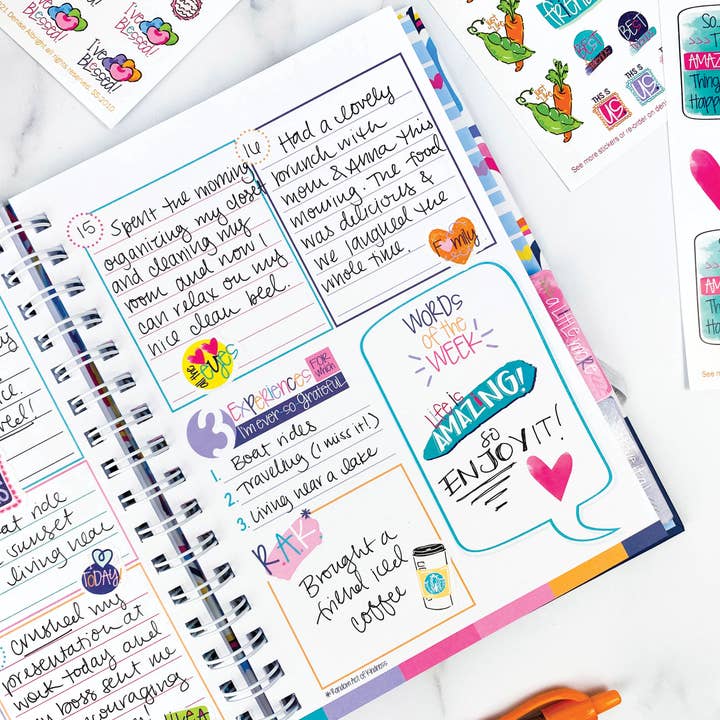 I've Been Blessed!
2021 Denise Albright all rights reserved. SS2010
BEST
BEST
THIS IS
US
THIS IS
US
See more stickers or re-order on
AMAZING
Thing
Happ
AMA
Thi
Happ
ce.
eel!
at ride
sunset
living near
TODAY
crushed my
presentation at
work today and
boss sent me
couraging
15
Spent the morning
organizing my closet
and cleaning my
room and now I
can relax on my
nice clean bed.
all the eyes
16
Had a lovely
brunch with
mom & Anna this
morning. The food
was delicious &
we laughed the
whole time.
Family
3 EXPERIENCES FOR WHICH
I'm ever-so-grateful
1. Boat rides
2. Travelling (I miss it!)
3. Living near a lake
R.A.K*
Brought a
friend iced
coffee
*Random Act of Kindness
WORDS
OF the
WEEK
Life is
AMAZING!
so
ENJOY IT!
a little more